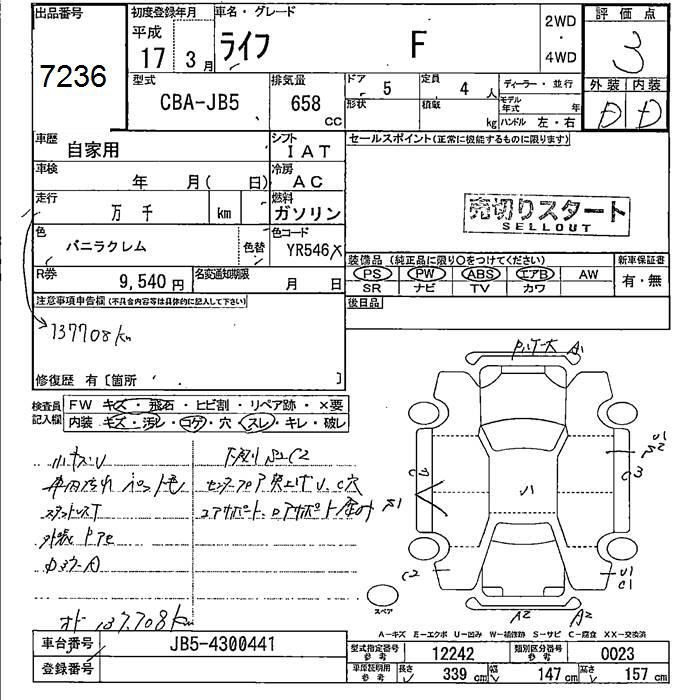 出品番号
7236
初度登録年月
平成
17 3月
車名・グレード
ライフ F
2WD
・
4WD
評価点
3
外装 内装
D D
型式
CBA-JB5
排気量
658
CC
ドア 5
定員 4 人
ディーラー・並行
形状
積載 kg
モデル年式 年
ハンドル 左・右
車歴
自家用
シフト
IAT
セールスポイント(正常に機能するものに限ります)
車検
年 月( 日)
冷房
AC
走行
万 千 km
燃料
ガソリン
売切りスタート
SELLOUT
色
バニラクレム
色替
色コード
YR546
装備品 (純正品に限り○をつけてください)
新車保証書
PS PW ABS エアB AW
有・無
SR ナビ TV カワ
R券
9,540 円
名変通知期限
月 日
後日品
注意事項申告欄 (不具合内容等は具体的に記入して下さい)
137708km
修復歴 有 [箇所 ]
検査員
記入欄
FW キズ・飛石・ヒビ割・リペア跡・×要
内装 キズ・汚レ・コゲ・穴・スレ・キレ・破レ
小キズU
下廻りS1C2
137,708km
A1
U1
S2
C3
U1
C2
U1
C1
A2 A2
スペア
A-キズ E-エクボ U-凹み W-補修跡 S-サビ C-腐食 XX-交換済
車台番号
JB5-4300441
登録番号
型式指定番号
参考
12242
類別区分番号
参考
0023
車庫証明用
参考
長さ 339 cm
幅 147 cm
高さ 157 cm